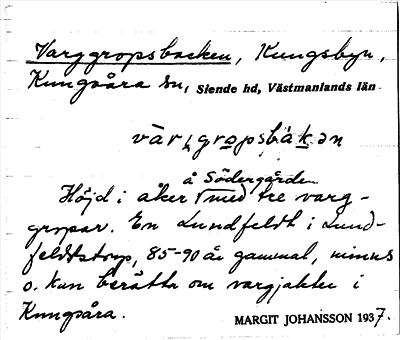 Varggropsbacken, Kungsbyn,
Kungsåra sn, Siende hd, Västmanlands län
vàr(gro̲psbák̲ən
å Södergården
Höjd i åker med tre varg-
gropar. En Lundfeldt i Lund-
feldtstorp, 85-90 år gammal, minns
o. kan berätta om vargjakter i
Kungsåra.
MARGIT JOHANSSON 1937.